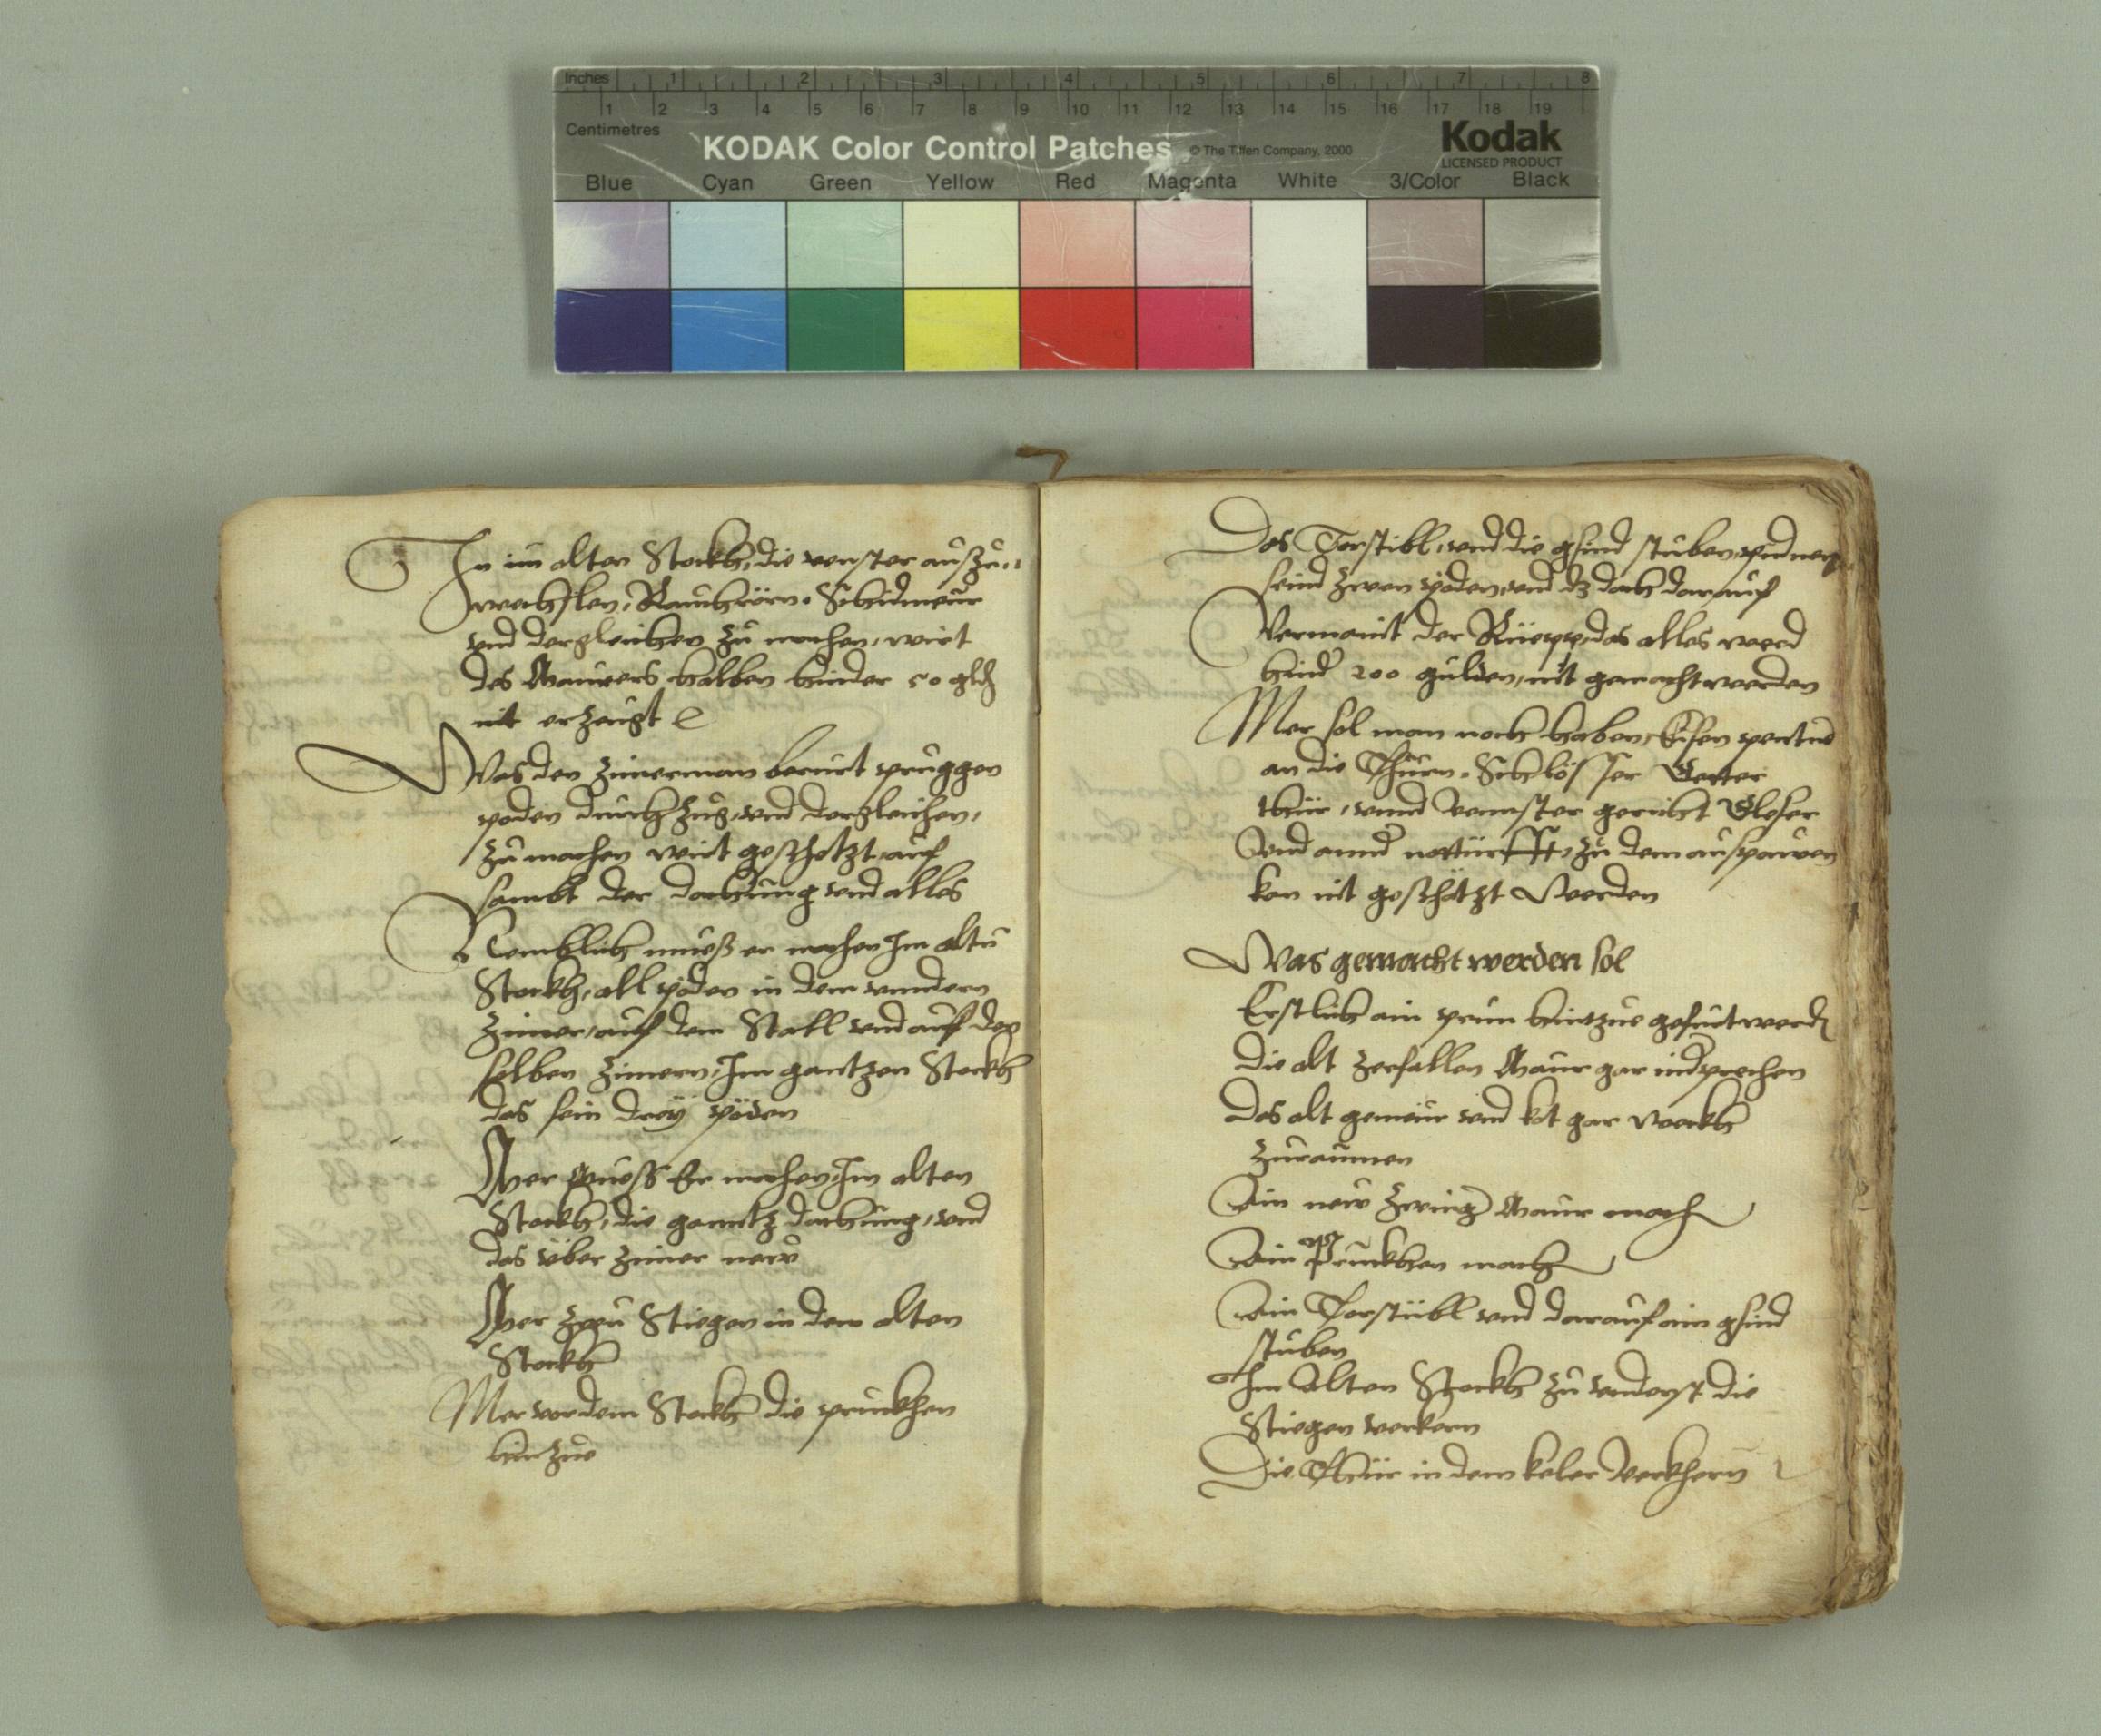 Inches 1 2 3 4 5 6 7 8
1 2 3 4 5 6 7 8 9 10 11 12 13 14 15 16 17 18 19
Centimetres
KODAK Color Control Patches © The Tiffen Company, 2000 Kodak
LICENSED PRODUCT
Blue Cyan Green Yellow Red Magenta White 3/Color Black
In im alten Stockh, die venster auszu
wechslen, Rauchrörn, Schidmeur
vnd dergleichen zu machen, wirt
des Maurers halben hinder 50 gld
nit erzeugt
Was den Zimerman berürt pruggen
poden durchzug, vnd dergleichen,
zu machen wirt geschetzt, auf
sambt der dachung vnd alles
Nemblich mueß er machen Im altn
Stockh, all pöden in dem vndern
Zimer, auf dem Stall vnd auf den
selben Zimern, Im gantzen Stockh
das sein dreÿ pöden
Mer muess Er machen, Im alten
Stockh, die ganntz dachung, vnd
das über Zimer new
Mer zwu Stiegen in dem alten
Stockh
Mer vor dem Stockh die pruckhen
hin zue
Das Torstibl, vnd die gsind stuben
seind zwen pöden, vnd dz dach darauf
Vermaint der Rüepp, das alles werd
hind 200 gulden, nit gemacht werden
Mer sol man noch haben, Eisen
an die Thurn, Schlösser Getter
thür, vnnd Vennster gericht Gleser
Vnd annd notturfft, zu dem auspawen
kan nit geschätzt Werden
Was gemacht werden sol
Erstlich ain prun hinzue gefürt werd
Die alt zerfallen Maur gar nidprechen
Das alt gemeür vnd kot gar weckh
zuraumen
Ain new Zwing Maur mach
Ain Pruckhen mach
Ain Torstübl vnd darauf ain gsind
stuben
Im Alten Stockh zu vnderst die
Stiegen verkern
Die Thür in dem keler Verkhern